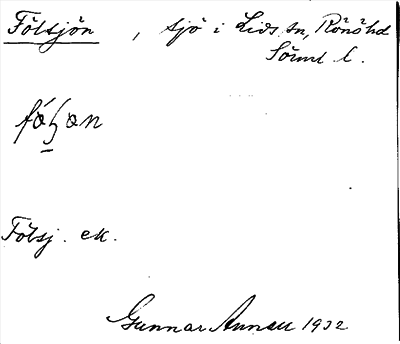 Fölsjön, sjö i Lids sn, Rönöhd
Sörml l.
Fölsj. ek.
Gunnar Annell 1932